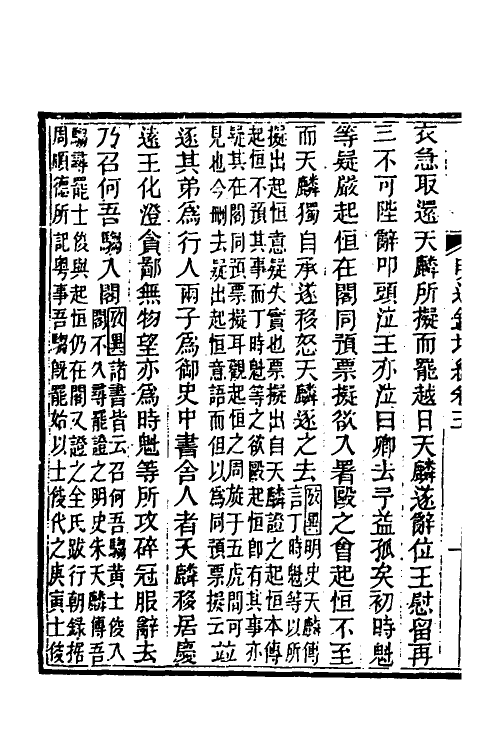 衣急取還天麟所擬而罷越日天麟遂辭位王慰留再
三不可陛辭叩頭泣王亦泣曰卿去予益孤矣初時魁
等疑嚴起恒在閣同預票擬欲入署毆之會起恒不至
而天麟獨自承遂移怒天麟逐之去攷異明史天麟傳
言丁時魁等以所
擬出起恒意疑失實也票擬出自天麟證之起恒本傳
起恒不預其事而丁時魁等之欲毆起恒卽有其事亦
疑其在閣同預票擬耳觀起恒之周旋于五虎間可
見也今刪去疑出起恒意語而但以爲同預票擬云並
逐其弟爲行人兩子爲御史中書舍人者天麟移居慶
遠王化澄貪鄙無物望亦爲時魁等所攻碎冠服辭去
乃召何吾騶入閣攷異諸書皆云召何吾騶黃士俊入
閣不久尋罷證之明史朱天麟傳吾
騶尋罷士俊與起恒仍在閣又證之全氏跋行朝錄據
周順德所記粵事吾騶旣罷始以士俊代之庚寅士俊